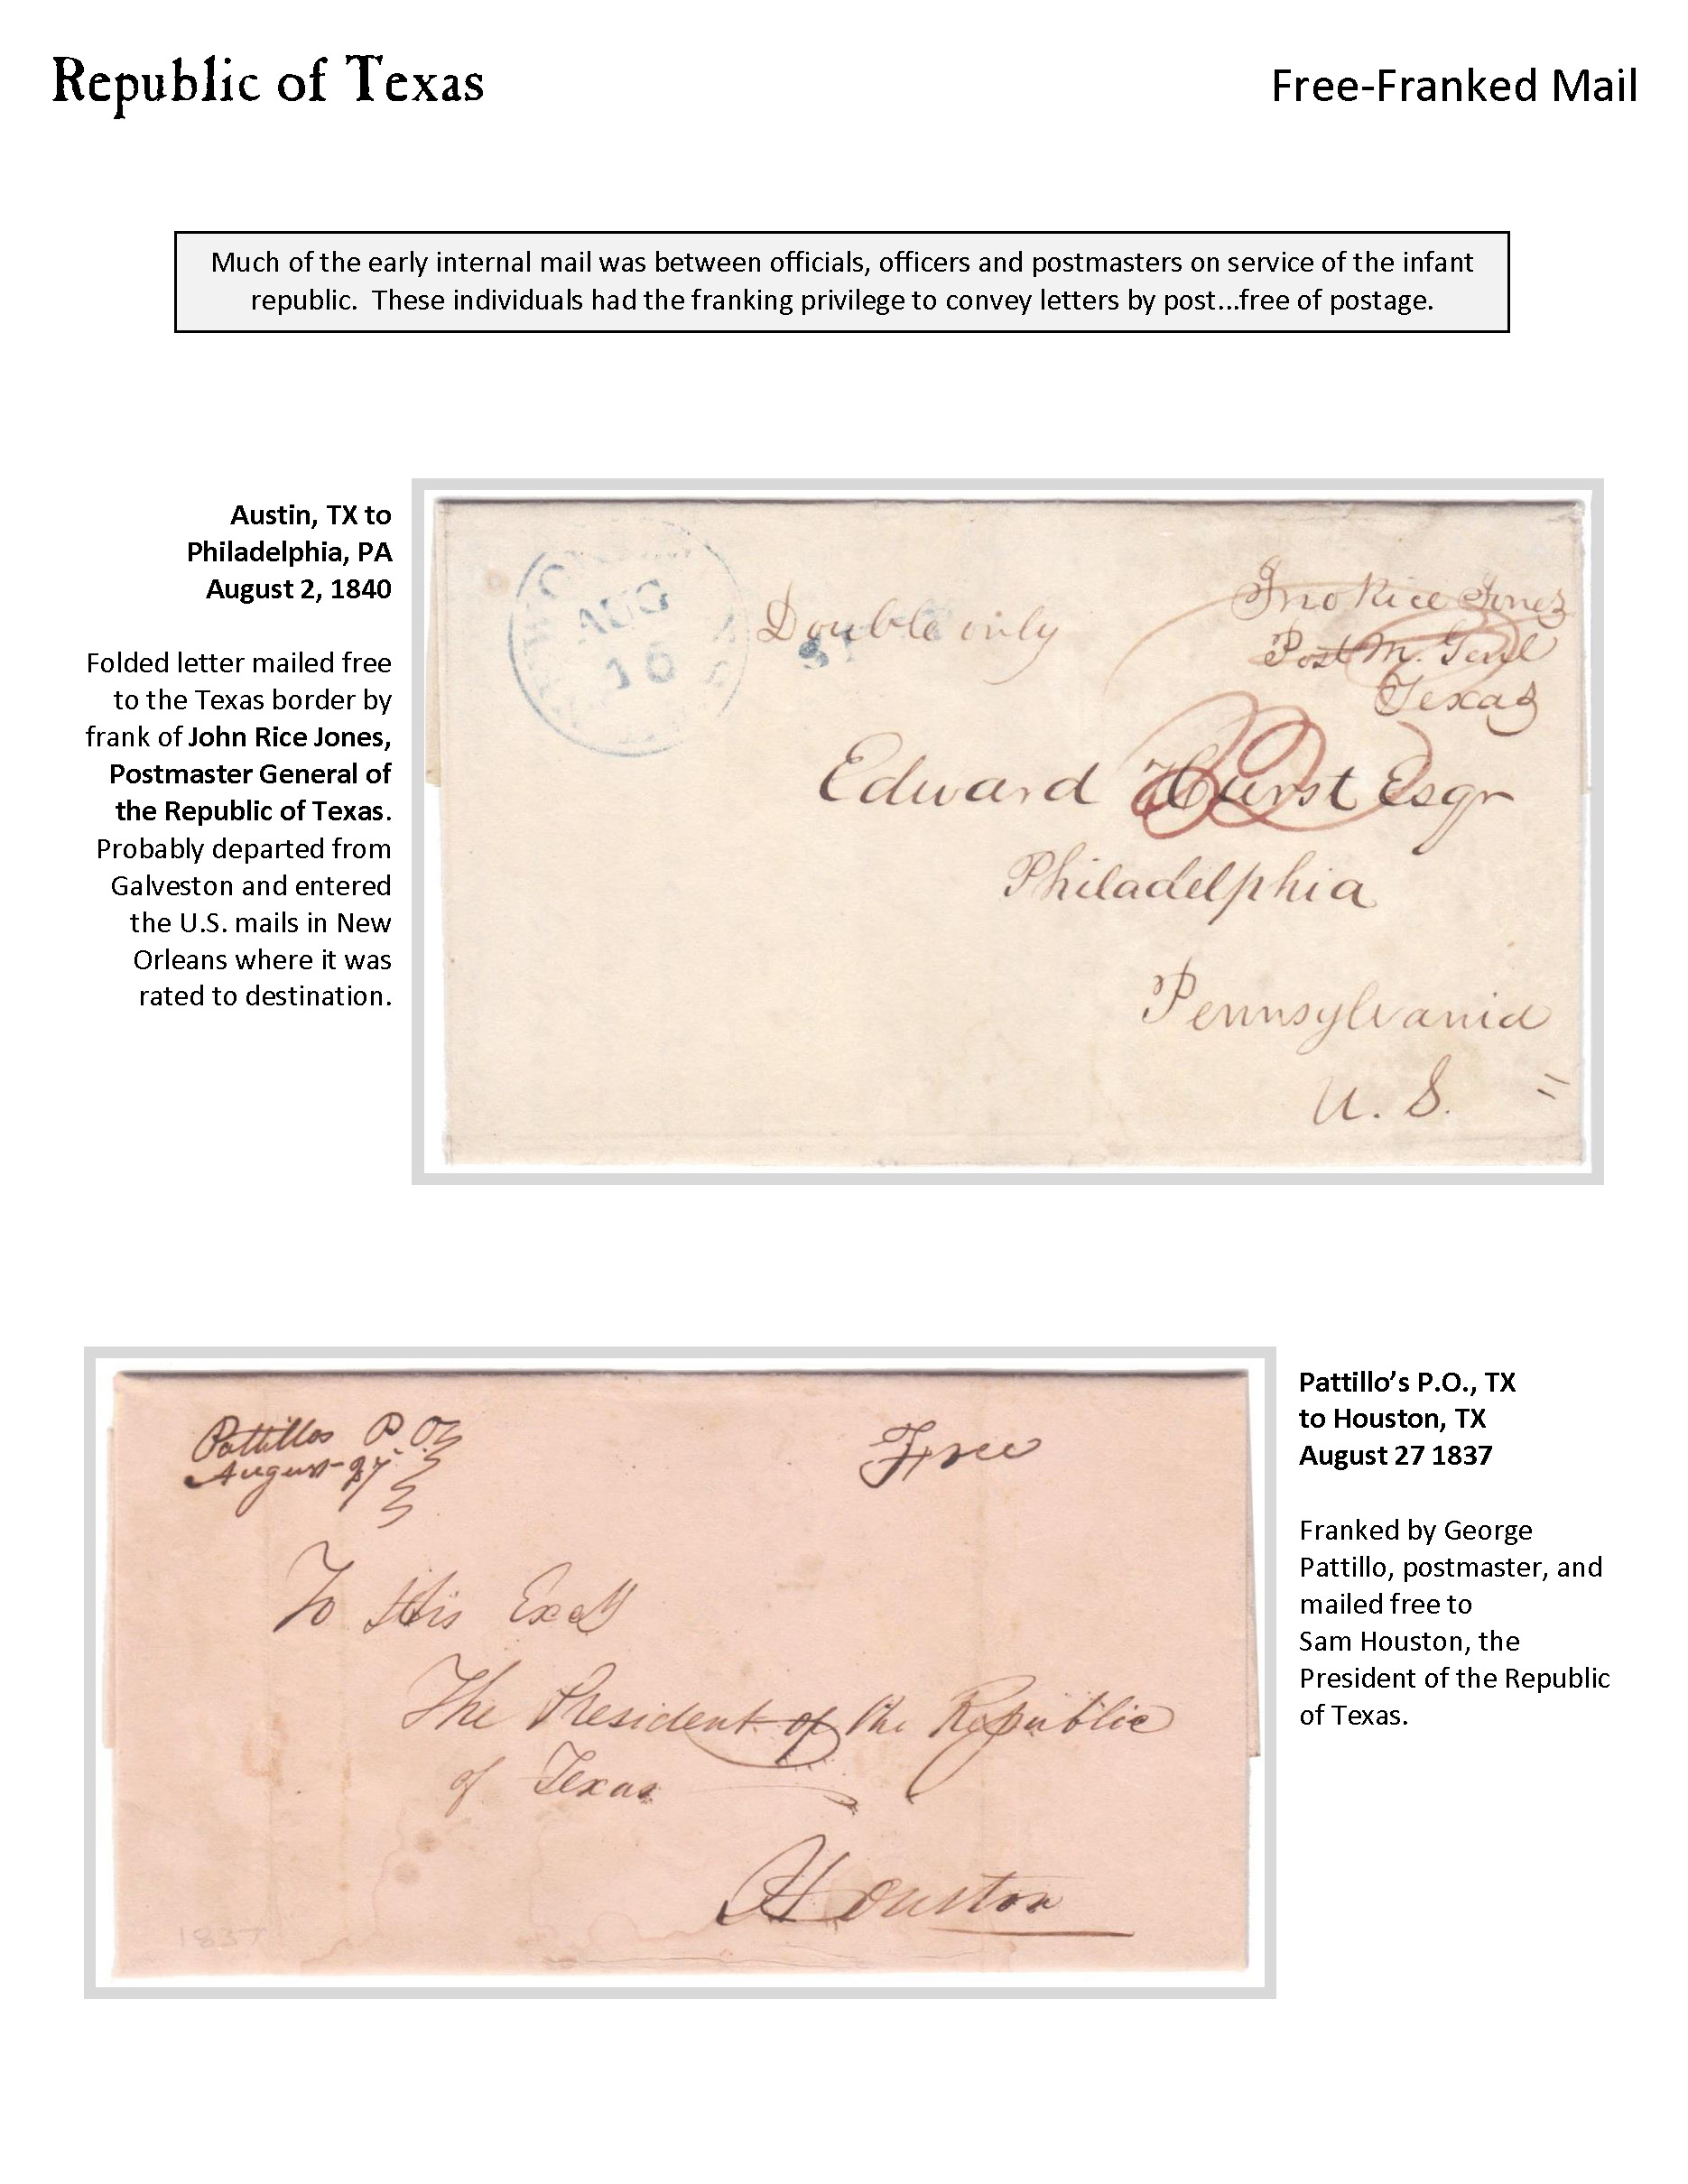 Republic of Texas
Free-Franked Mail
Much of the early internal mail was between officials, officers and postmasters on service of the infant
republic.  These individuals had the franking privilege to convey letters by post...free of postage.
Austin, TX to
Philadelphia, PA
August 2, 1840
Folded letter mailed free
to the Texas border by
frank of John Rice Jones,
Postmaster General of
the Republic of Texas.
Probably departed from
Galveston and entered
the U.S. mails in New
Orleans where it was
rated to destination.
AUG
16
Double only
Jno Rice Jones
Post M. Genl
Texas
Edward Hurst Esqr
Philadelphia
Pennsylvania
U. S.
Pattillos P.O.
August 27
Free
To His Excely
The President of the Republic
of Texas
Houston
1837
Pattillo’s P.O., TX
to Houston, TX
August 27 1837
Franked by George
Pattillo, postmaster, and
mailed free to
Sam Houston, the
President of the Republic
of Texas.